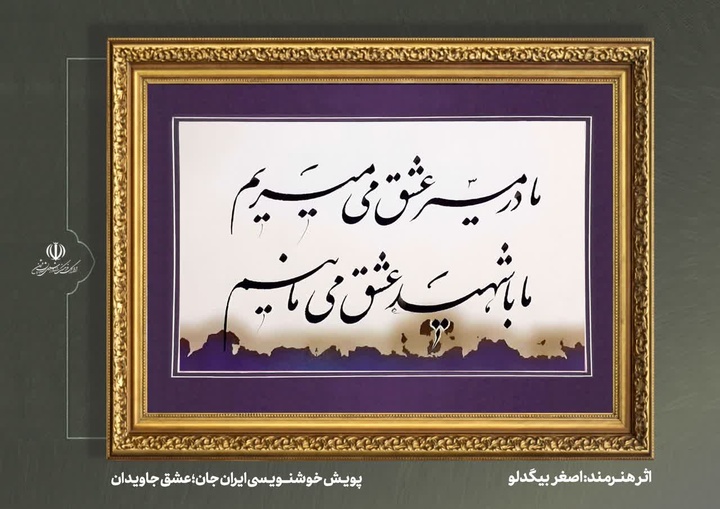 ما در مسیر عشق می میریم
ما با شهید عشق می مانیم
اثر هنرمند: اصغر بیگدلو
پویش خوشنویسی ایران جان؛ عشق جاویدان